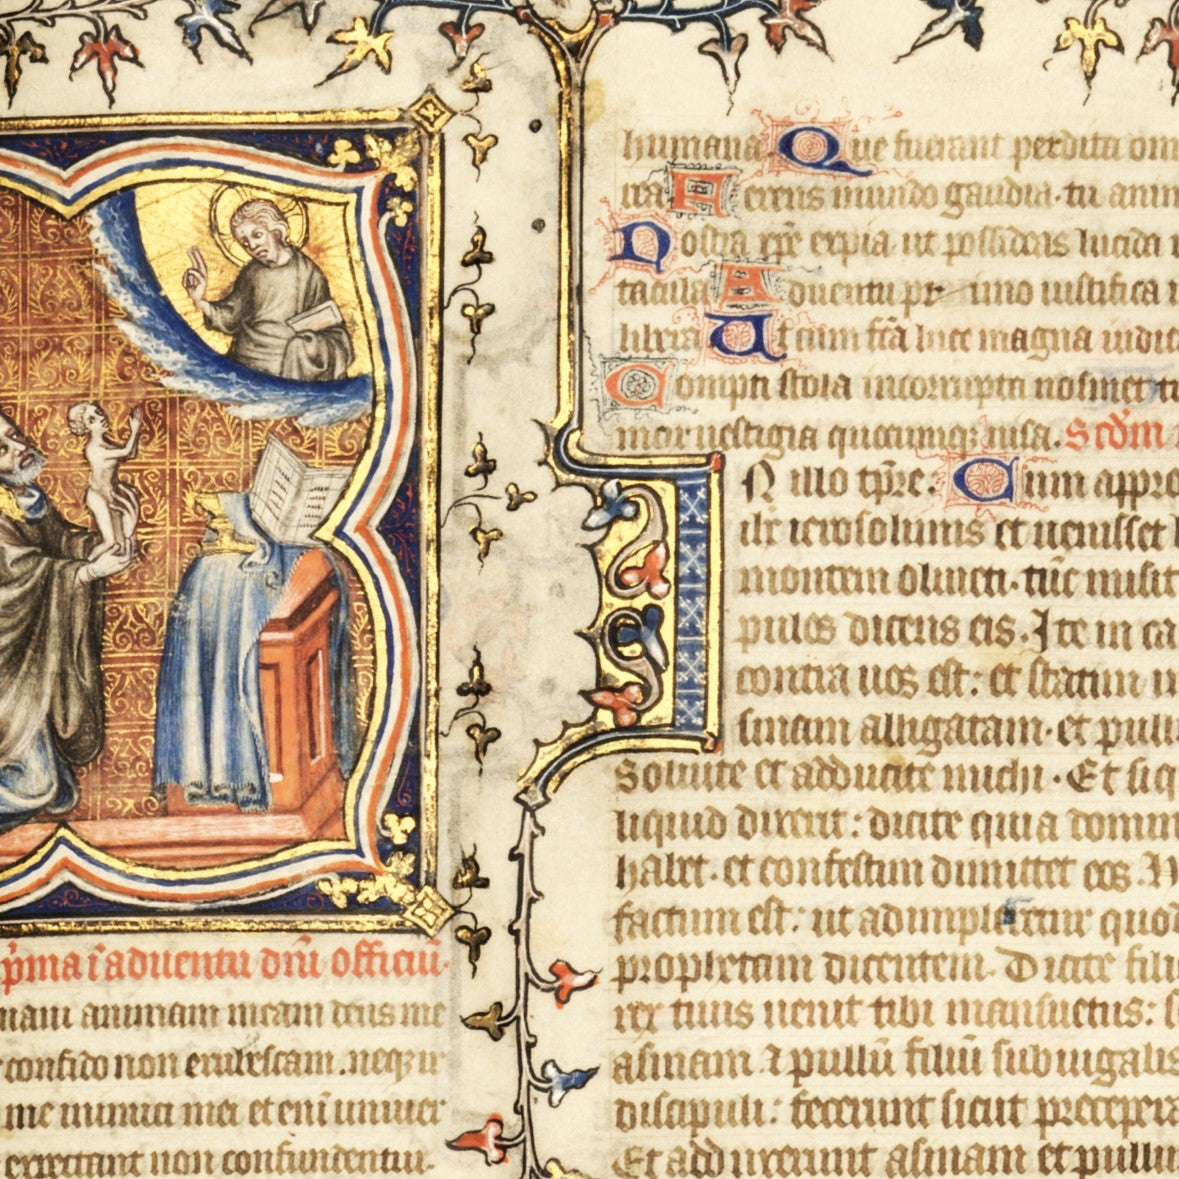 pma ī aduentu dn̄i officiū.
nam animam meam deus me
confido non erubescam. neq; ir
me inimici mei et enī uniuer
expectant non confundentur.
humana. Que fuerant perdita om
Aeteris mundo gaudia. tu anim
Nostra xp̄e expia. ut possideas lucida
tacula Aduentu primo iustifica
libera Ut cum fc̄a luce magna iudic
Compti stola incorrupta nosmet tu
mur uestigia quocumq; uisa. Scdm
N illo tp̄re. Cum appro
ihc ierosolimis et uenisset
montem oliueti. tūc misit
pulos dicens eis. Ite in ca
contra uos est: et statim in
sinam alligatam. et pullu
Soluite et adducite michi. Et siq
liquid dixerit: dicite quia domin
habet. et confestim dimittet eos. N
factum est: ut adimpleretur quod
prophetam dicentem. Dicite fili
rex tuus uenit tibi mansuetus: s
asinam ⁊ pullū filiū subiugalis
discipuli: fecerunt sicut precepera
Et adduxerunt asinam et pullu